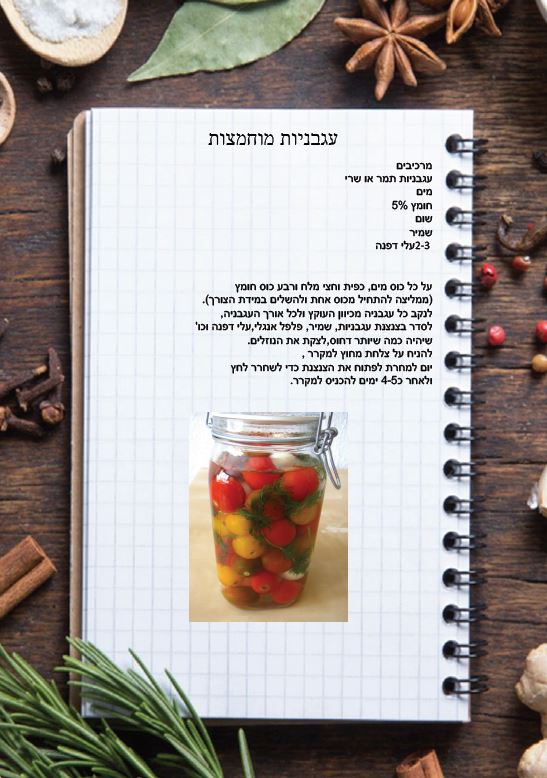 עגבניות מוחמצות
מרכיבים
עגבניות תמר או שרי
מים
חומץ 5%
שום
שמיר
2-3עלי דפנה
על כל כוס מים, כפית וחצי מלח ורבע כוס חומץ
(ממליצה להתחיל מכוס אחת ולהשלים במידת הצורך).
לנקב כל עגבניה מכיוון העוקץ ולכל אורך העגבניה,
לסדר בצנצנת עגבניות, שמיר, פלפל אנגלי,עלי דפנה וכו'
שיהיה כמה שיותר דחוס,לצקת את הנוזלים.
להניח על צלחת מחוץ למקרר ,
יום למחרת לפתוח את הצנצנת כדי לשחרר לחץ
ולאחר כ4-5 ימים להכניס למקרר.